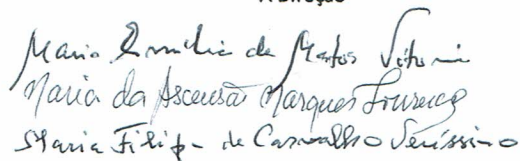 A Direção
Maria Emilia de Matos Vitoria
Maria da Ascensão Marques Lourenço
Maria Filipa de Carvalho Veríssimo